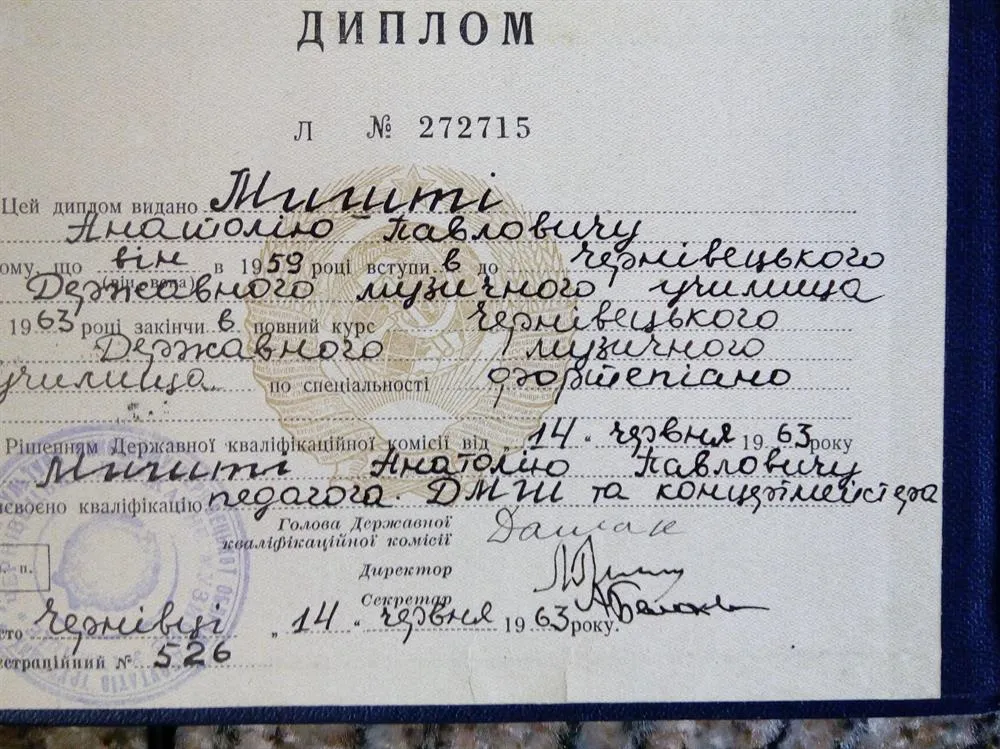 ДИПЛОМ
Л № 272715
Цей диплом видано Мигиті
Анатолію Павловичу
ому, що він в 1959 році вступив до Чернівецького
(він, вона)
Державного музичного училища
1963 році закінчив повний курс Чернівецького
Державного музичного
училища по спеціальності фортепіано
Рішенням Державної кваліфікаційної комісії від „14" червня 1963 року
Мигиті Анатолію Павловичу
исвоєно кваліфікацію педагога ДМШ та концертмейстера
Голова Державної
кваліфікаційної комісії
Директор
Секретар
п.
сто Чернівці „14" червня 1963 року.
естраційний № 526